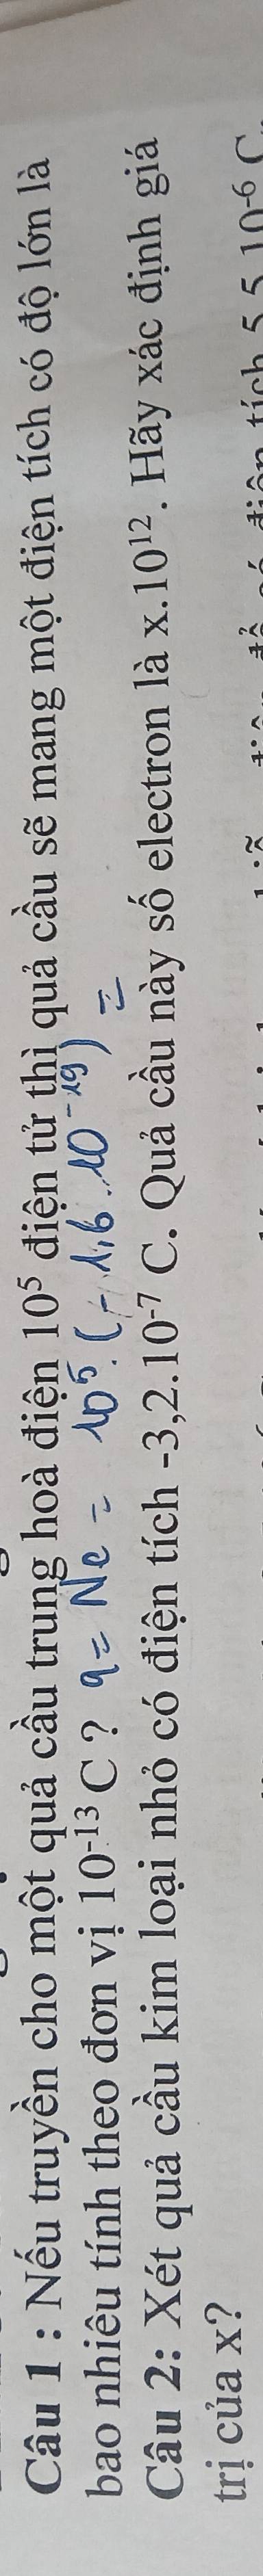 Câu 1 : Nếu truyền cho một quả cầu trung hoà điện 10⁵ điện tử thì quả cầu sẽ mang một điện tích có độ lớn là
bao nhiêu tính theo đơn vị 10⁻¹³ C ? q = Ne = 10⁵.(-1,6.10⁻¹⁹) =
Câu 2: Xét quả cầu kim loại nhỏ có điện tích -3,2.10⁻⁷ C. Quả cầu này số electron là x.10¹². Hãy xác định giá
trị của x?
điện tích 5,5.10⁻⁶ C